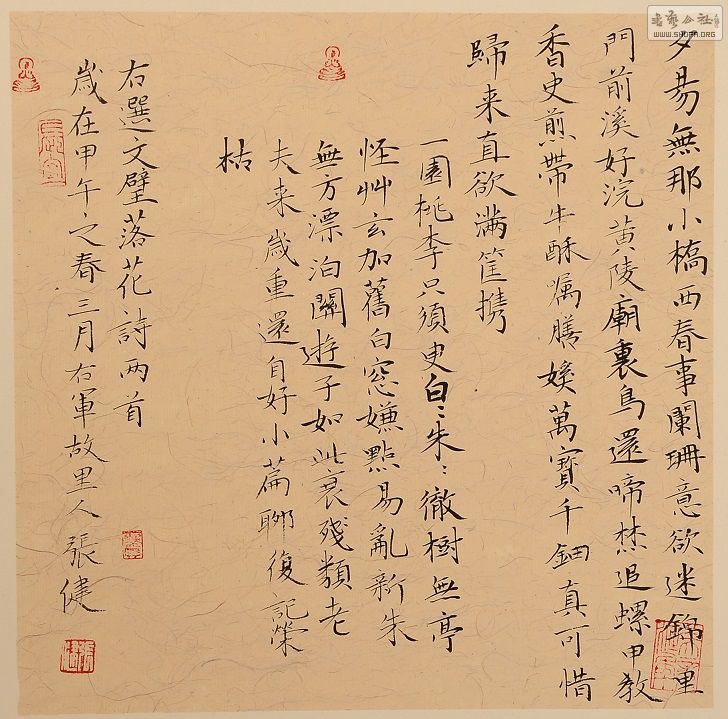 夕昜無那小橋西春事闌珊意欲迷錦里
門前溪好浣黄陵廟裏鳥還啼焚追螺甲教
香史煎帶牛酥囑膳娭萬寶千鈿真可惜
歸来直欲滿筐携
一園桃李只須臾白〻朱〻徹樹無亭
怪艸玄加舊白窓嫌點易亂新朱
無方漂泊關遊子如此衰殘類老
夫来歲重還自好小篇聊復記榮
枯
右選文璧落花詩两首
歲在甲午之春三月右軍故里人張健
書藝公社
WWW.SHUFA.ORG